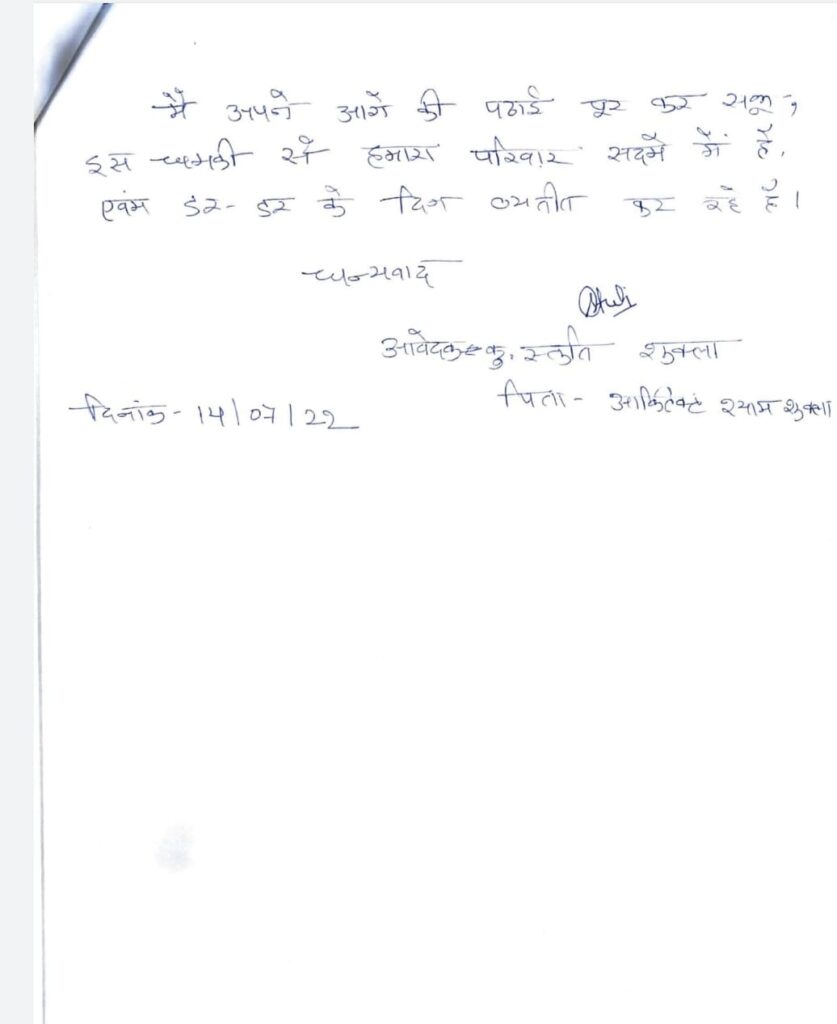 मैं अपने आगें की पढाई पूर कर सकू,
इस धमकी से हमारा परिवार सदमें में है,
एवंम डर-डर के दिन व्यतीत कर रहे है।
धन्यवाद
आवेदक - कु. स्तुति शुक्ला
पिता - आर्किटेक्ट श्याम शुक्ला
दिनांक - 14/07/22